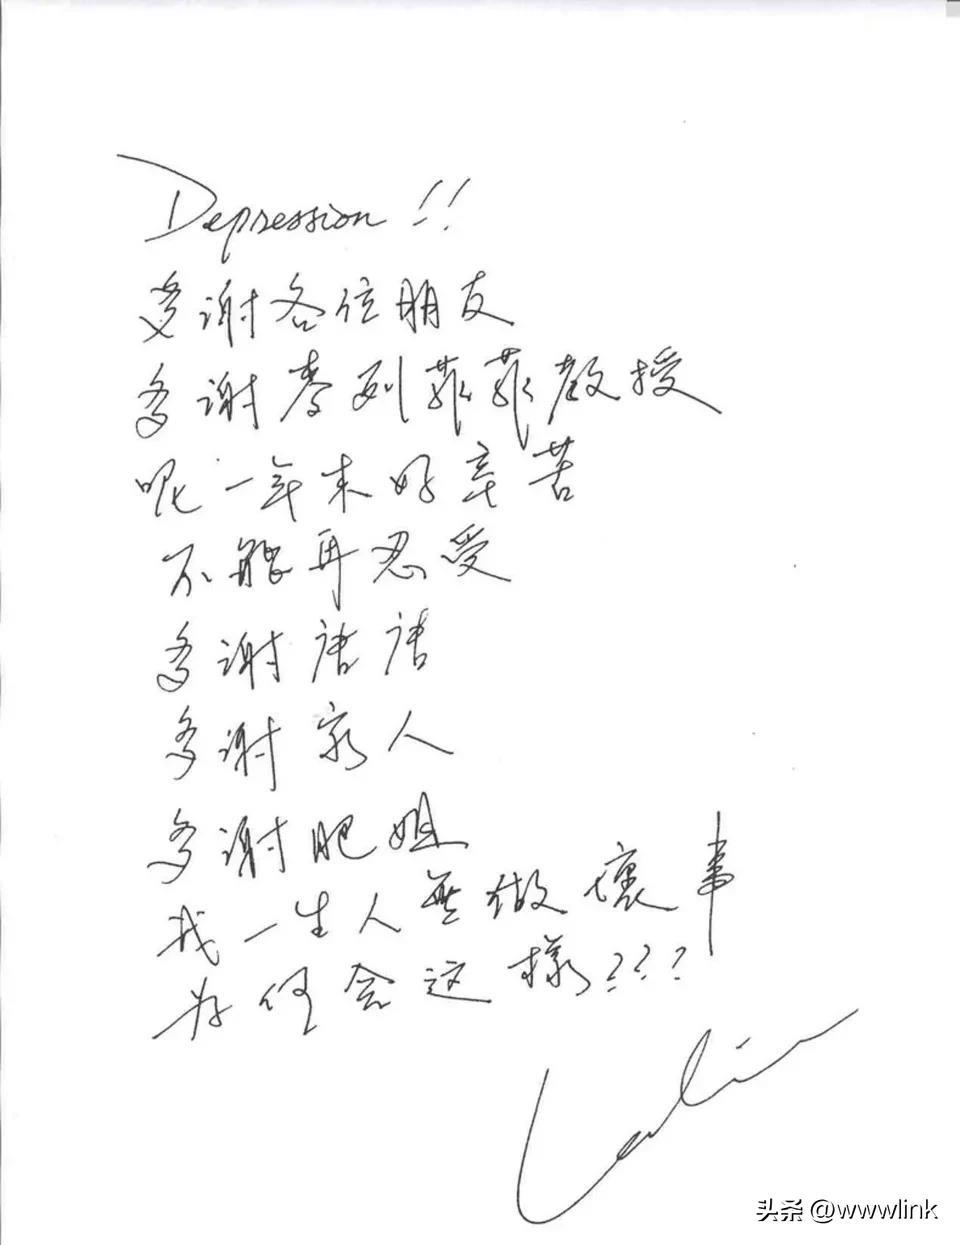 Depression!!
多謝各位朋友
多謝麥列菲菲教授
呢一年來好辛苦
不能再忍受
多謝唐唐
多謝家人
多謝肥姐
我一生人無做壞事
为何會這樣???
Leslie
头条 @wwwlink